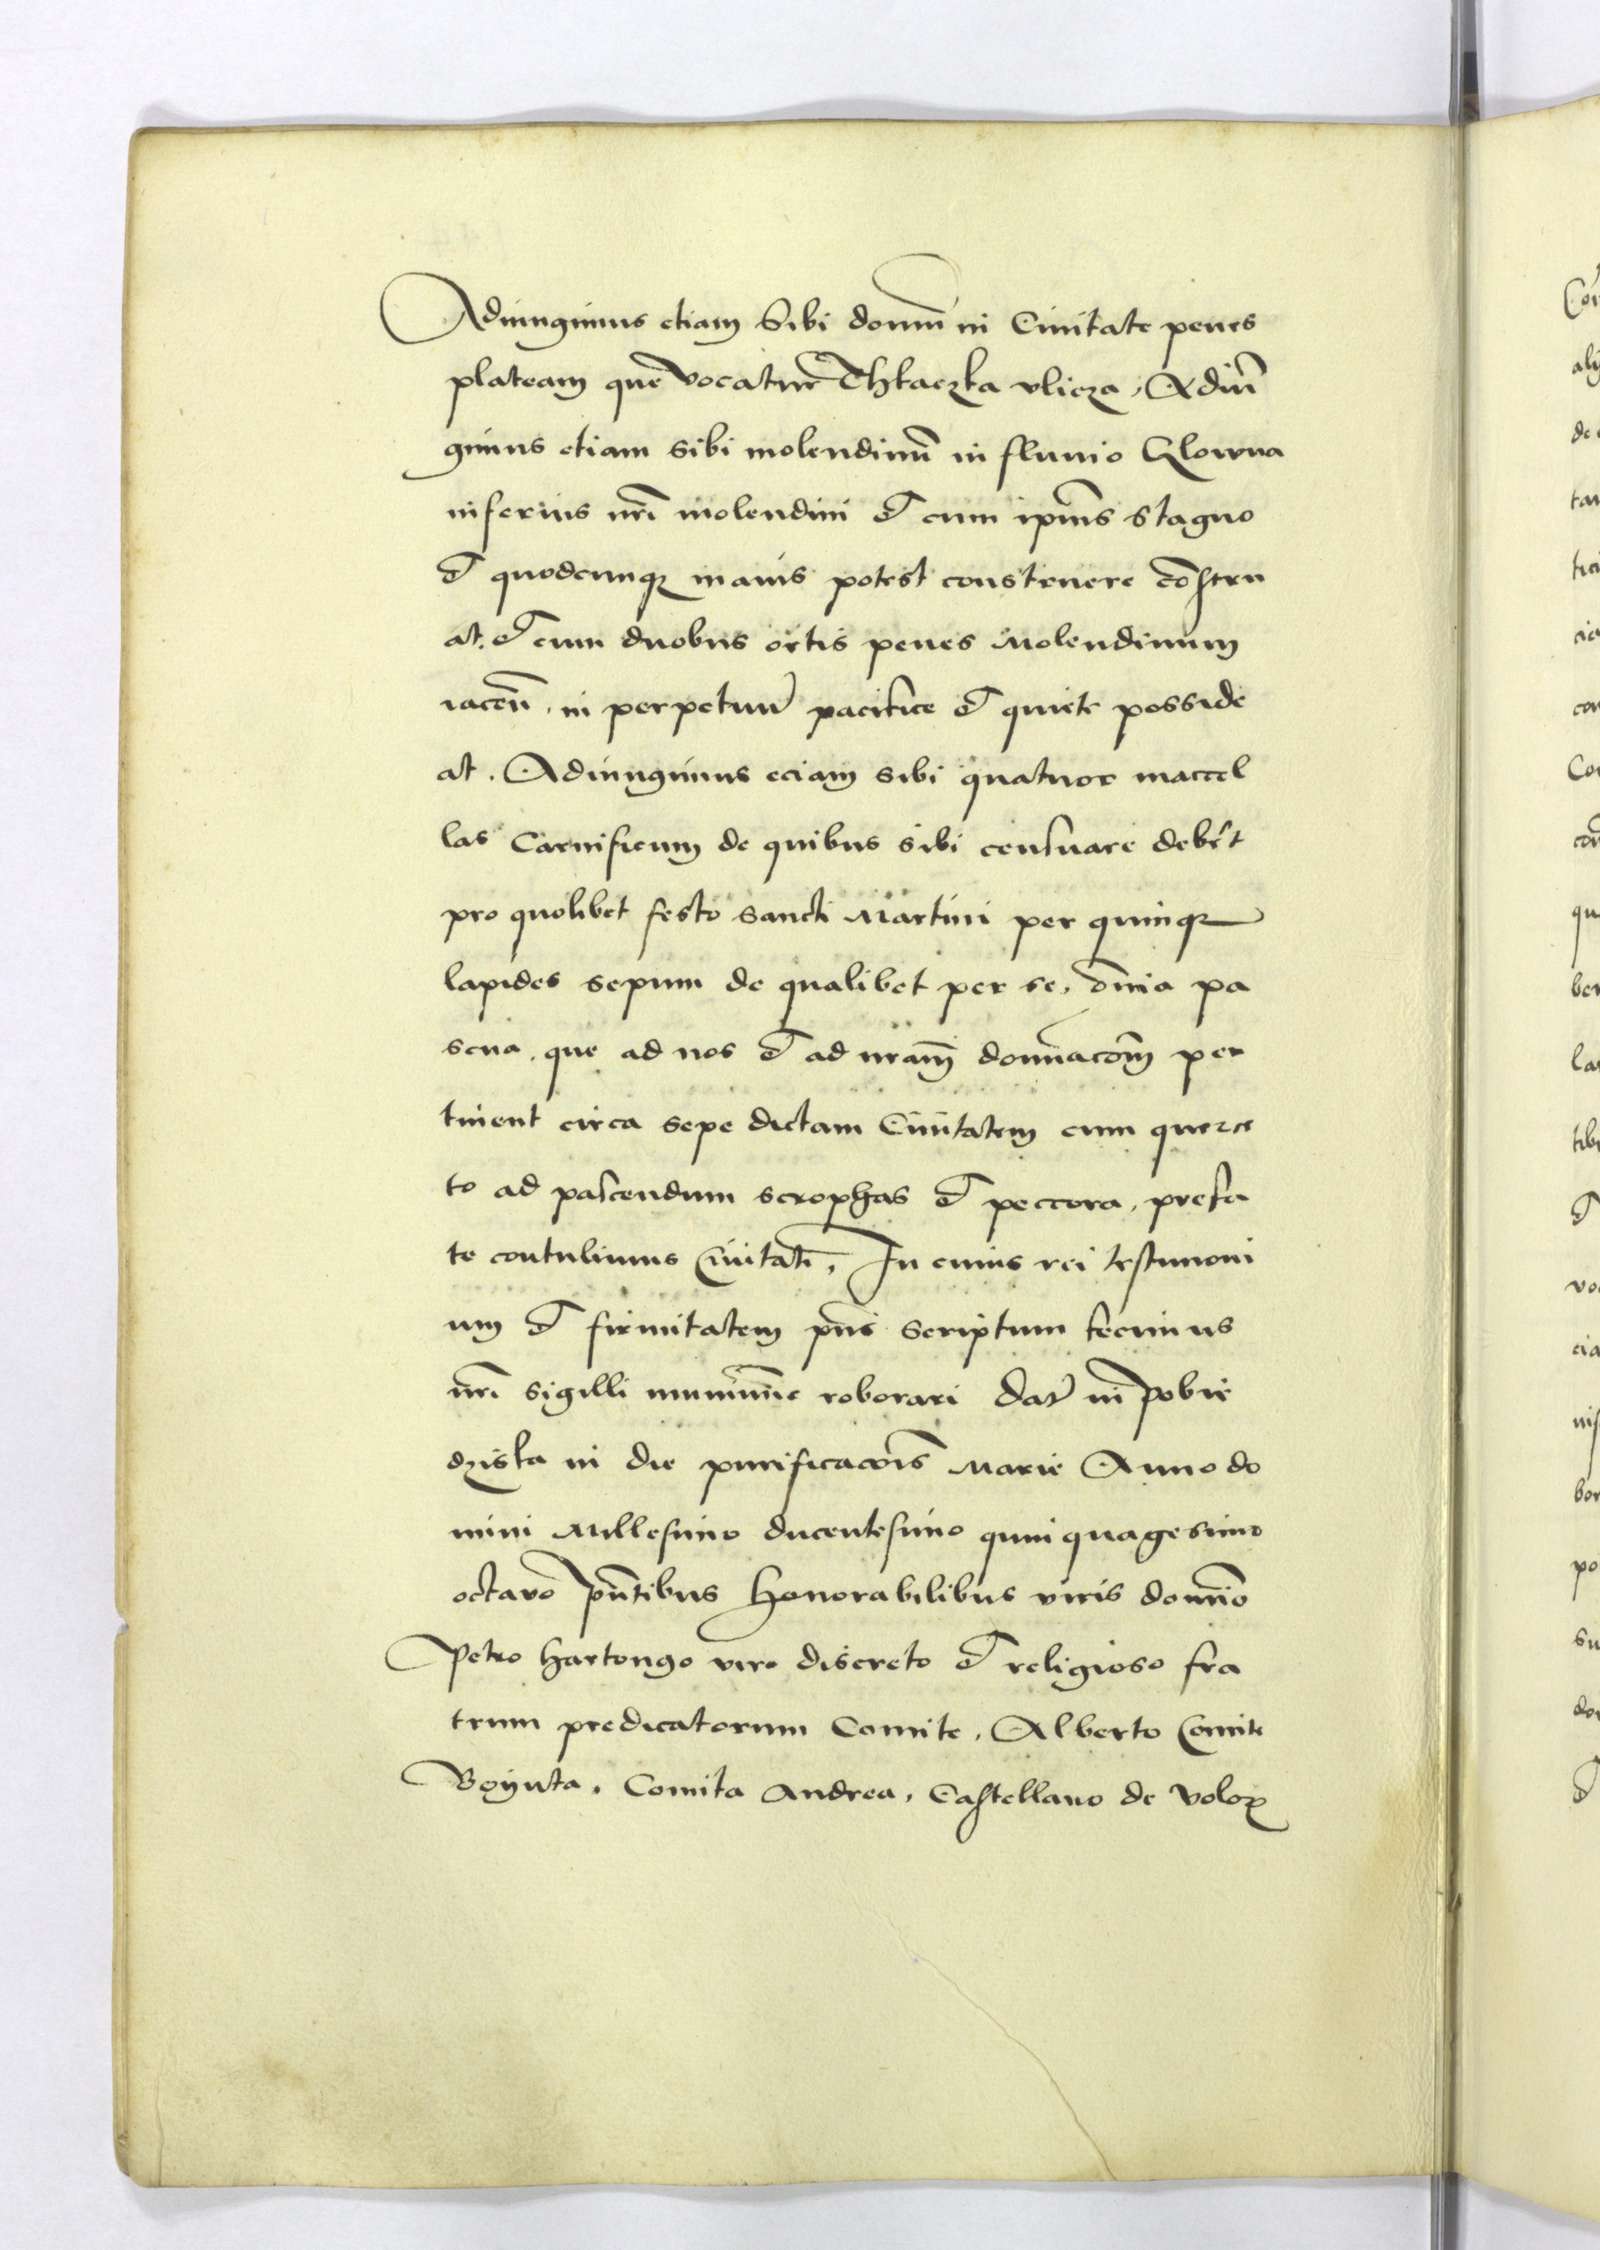 Adiungimus etiam Sibi domũ in Ciuitate penes
plateam que vocatur Thkaczka vlicza, Adiũ
gimus etiam sibi molendinũ in fluuio Glowna
inferius nr̃i molendini et cum ipsius stagno
et quodcunq maius potest construere cõstru
at. et cum duobus ortis penes Molendinum
iaceñ. in perpetuũ pacifice et quiete posside
at. Adiungimus eciam sibi quatuor maccel
las Carnificum de quibus sibi censuare debẽt
pro quolibet festo sancti Martini per quinq
lapides sepum de qualibet per se, oĩnia pa
scua. que ad nos et ad nram̃ domiacõm per
tinent circa sepe dictam Ciuitatem cum querce
to ad pascendum scrophas et peccora, prefa
te contulimus Ciuitati, In cuius rei testimoni
um et firmitatem pñs scriptum fecimus
nr̃i sigilli munimine roborari Dat̃ in Pobie
dziska in die purificacõis Marie Anno do
mini Millesimo ducentesimo quinquagesimo
octauo p̃ntibus Honorabilibus viris domino
Petro Hartongo viro discreto et religioso fra
trum predicatorum Comite, Alberto Comite
Boguta, Comita Andrea, Castellano de